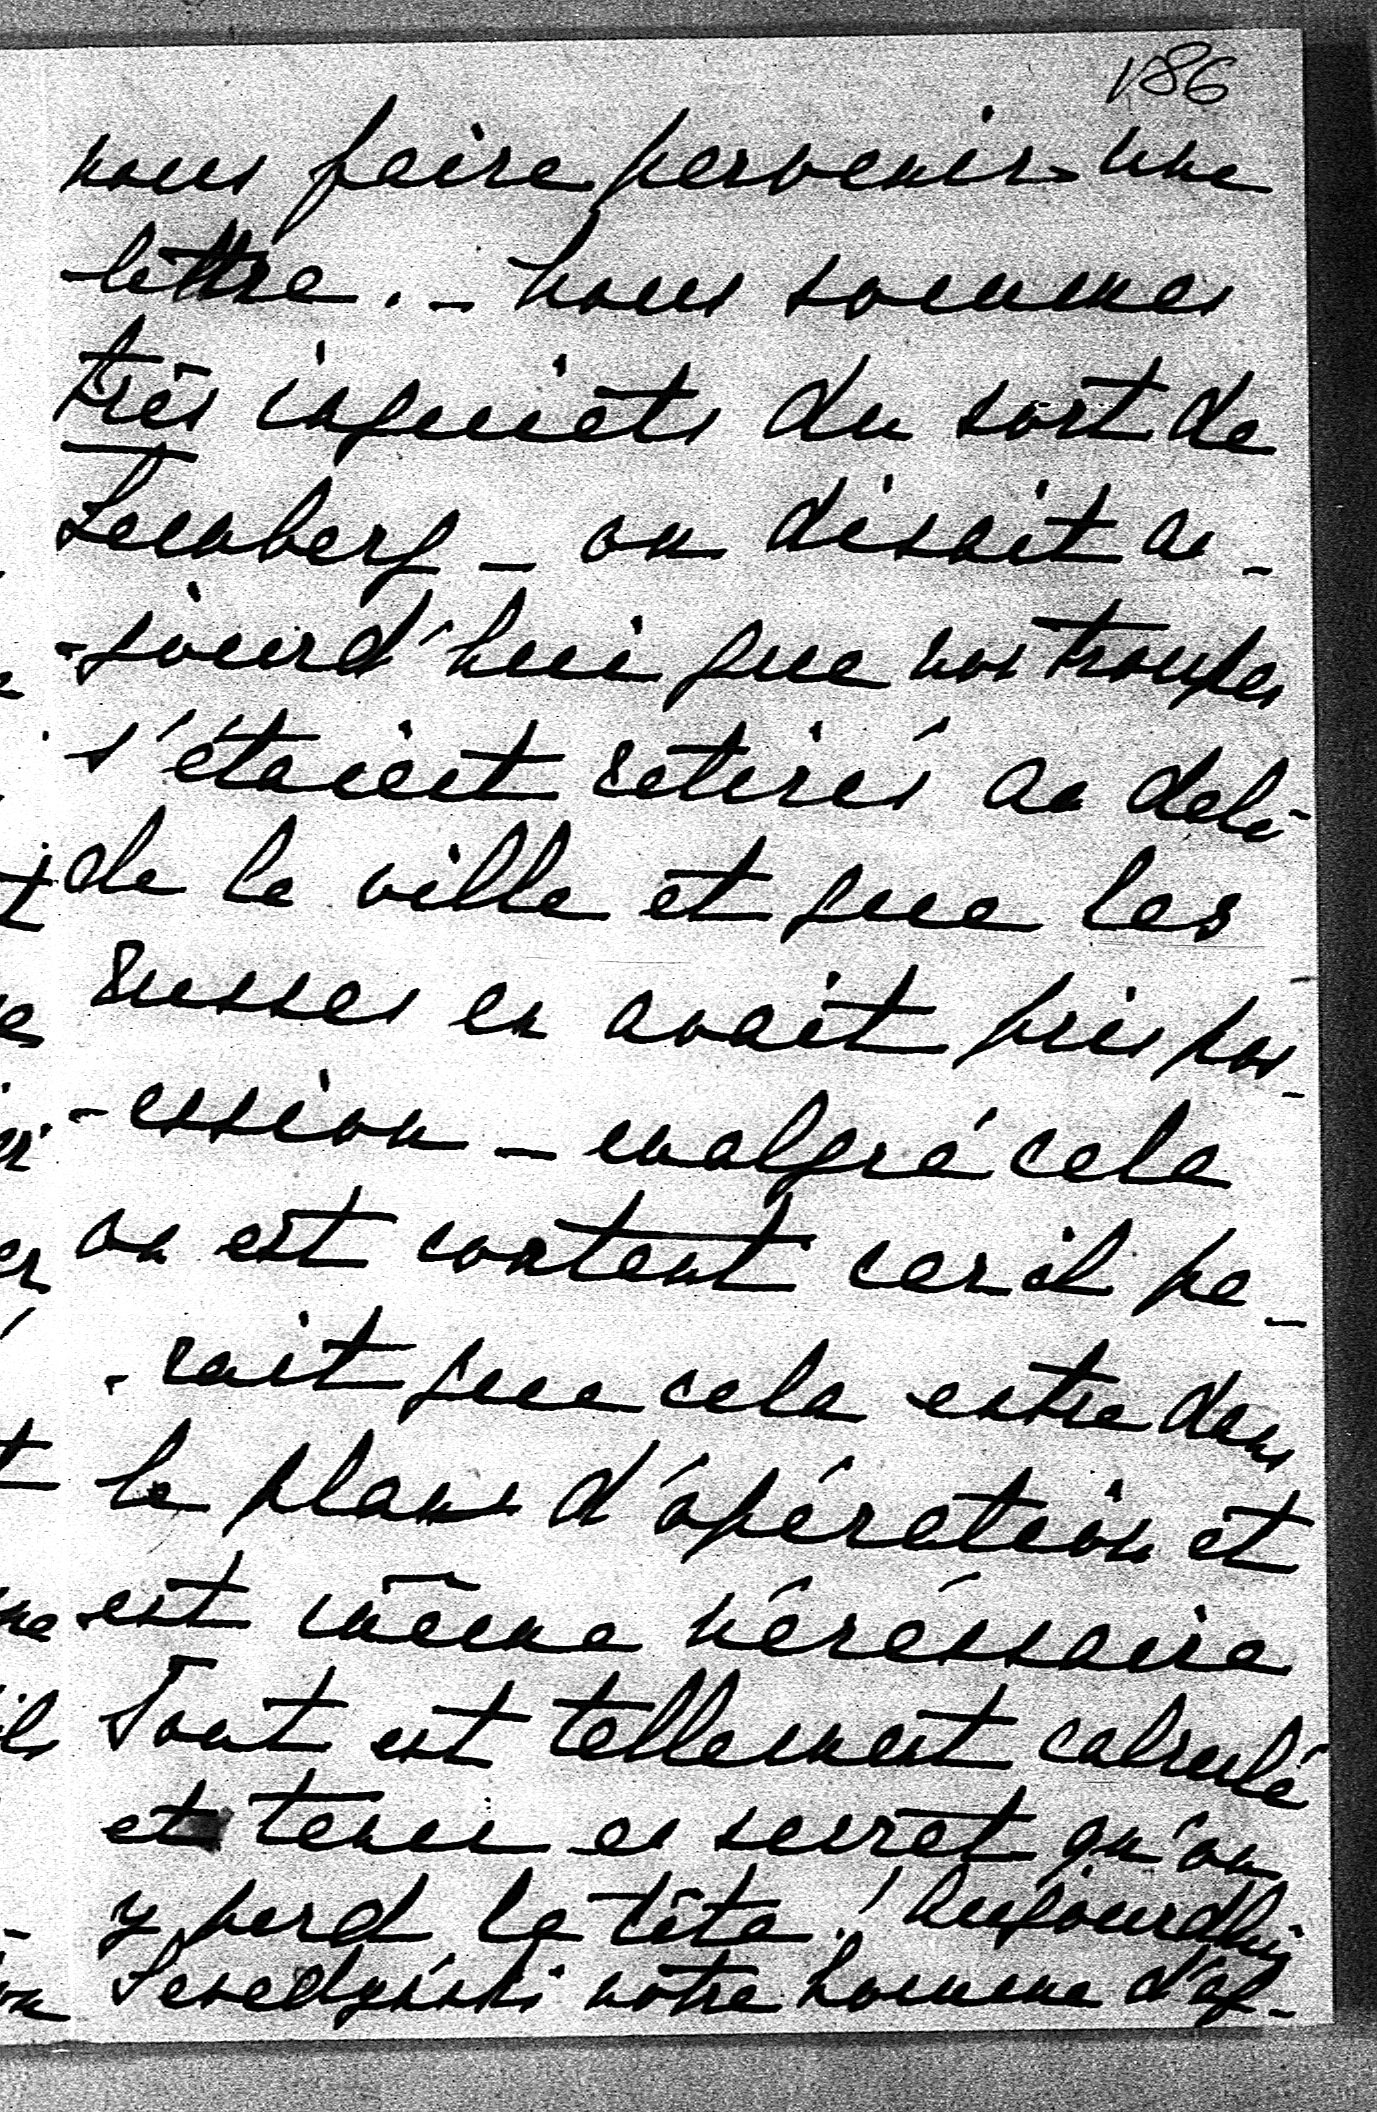 186
nous faire parvenir une
lettre. - Nous sommes
très inquiets du sort de
Lemberg - on disait au-
-jourd'hui que nos troupes
s'étaient retirés au delà
de la ville et que les
Russes en avait pris pos-
-ession - malgré cela
on est content car il pa-
-rait que cela entre dans
le plans d'opération et
est même nécéssaire
Tout est tellement calculé
et tenu en secret qu'on
y perd la tête! Aujourdhui
notre homme d'af-